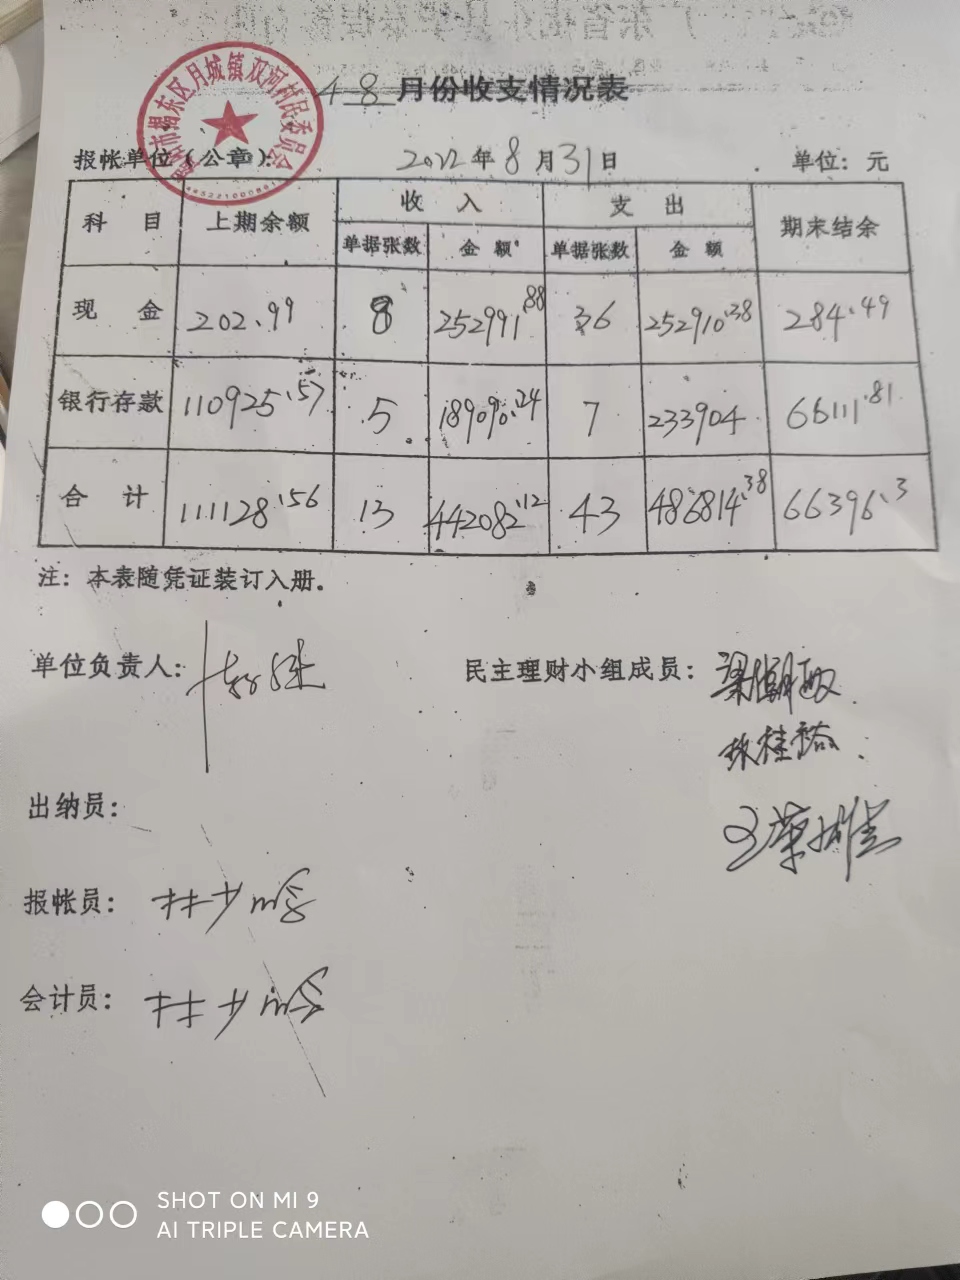 4-8月份收支情况表
揭东区月城镇双河村民委员会
报帐单位(公章): 2022年8月31日 单位：元
科目 上期余额 收入 支出 期末结余
单据张数 金额 单据张数 金额
现金 202.99 8 252991.88 36 252910.38 284.49
银行存款 110925.57 5 189090.24 7 233904 66111.81
合计 111128.56 13 442082.12 43 486814.38 66396.3
注：本表随凭证装订入册。
单位负责人： 民主理财小组成员：
出纳员：
报帐员：
会计员：
SHOT ON MI 9
AI TRIPLE CAMERA